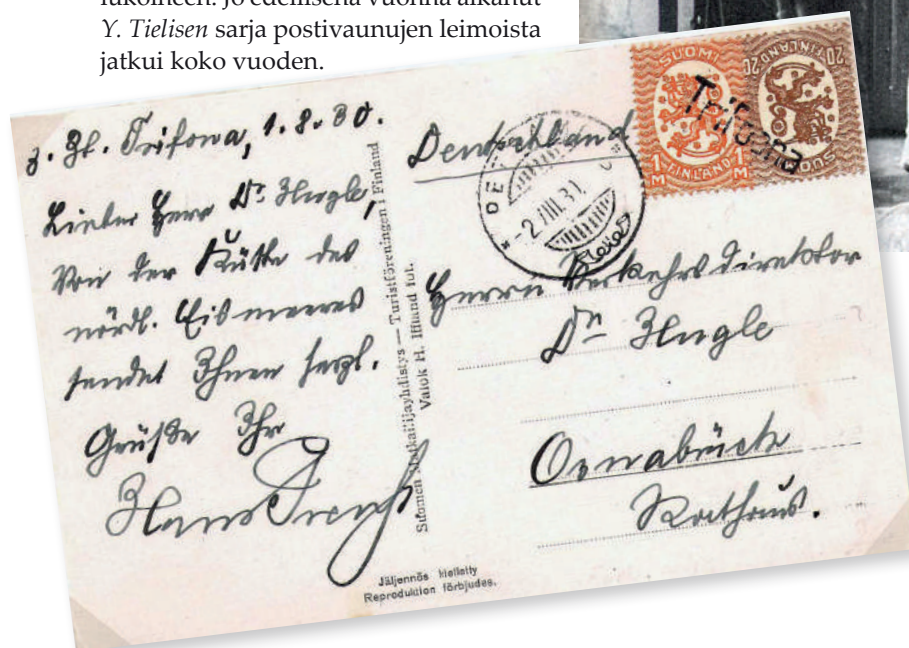 Jo edellisenä vuonna alkanut
Y. Tielisen sarja postivaunujen leimoista
jatkui koko vuoden.
z. Zt. Trifona, 1.8.30.
Lieber Herr Dr.
Von der Küste des
nördl. Eismeeres
sendet Ihnen herzl.
Grüße Ihr
Hans
Suomen Matkailijayhdistys — Turistföreningen i Finland
Valok H. Iffland fot.
Jäljennös kielletty
Reproduktion förbjudes.
Deutschland
SUOMI
1 M FINLAND 1 M
20 FINLAND 20
SUOMI
Trifona
-2.VIII.30
Herrn Verkehrsdirektor
Dr
Osnabrück
Rathaus.